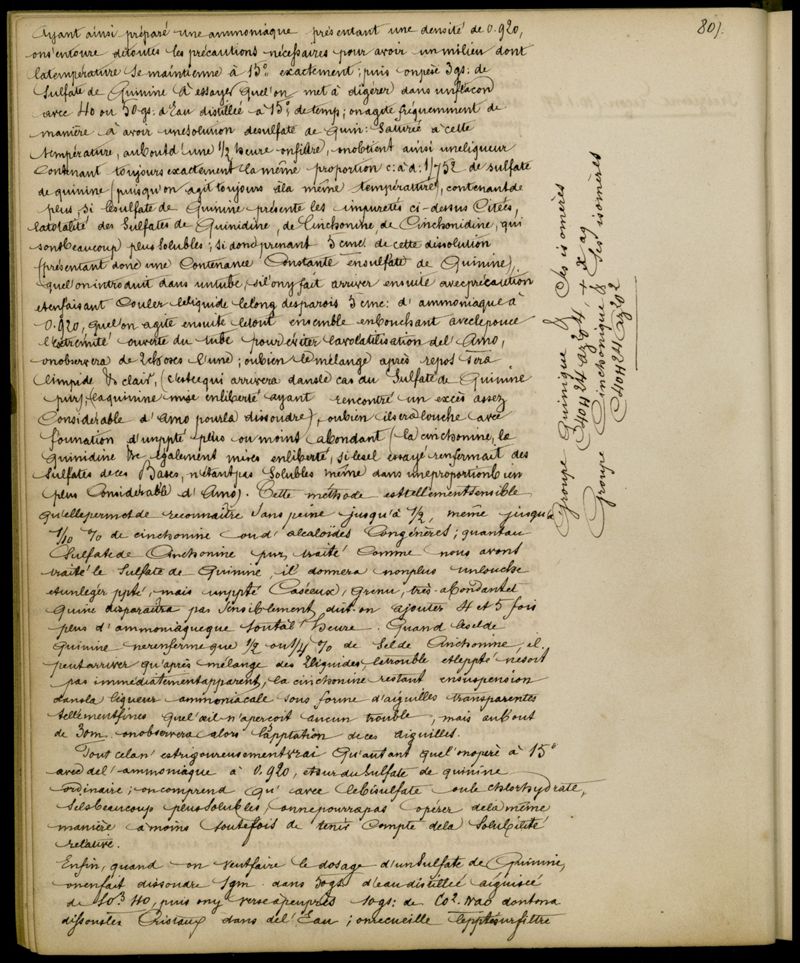 801.
Ayant ainsi préparé une ammoniaque présentant une densité de 0.920,
on s'entoure de toutes les précautions nécessaires pour avoir un milieu dont
la température se maintienne à 15° exactement ; puis on pèse 3 gs: de
Sulfate de Quinine à essayer que l'on met à digérer dans un flacon
avec 40 ou 50 gs: d'Eau distillée à 15° de temp ; on agite fréquemment de
manière à avoir une solution de sulfate de Quin: Saturée à cette
température, au bout d'une 1/2 heure on filtre, on obtient ainsi une liqueur
Contenant toujours exactement la même proportion c: à d: 1/752 de sulfate
de quinine (puisqu'on agit toujours à la même température), contenant de
plus, si le sulfate de Quinine présente les impuretés ci-dessus Citées,
la totalité des Sulfates de Quinidine, de Cinchonine, de Cinchonidine, qui
sont beaucoup plus solubles ; si donc prenant 5 cmc: de cette dissolution
(présentant donc une Contenance Constante en sulfate de Quinine),
que l'on introduit dans un tube, si l'on y fait arriver ensuite avec précaution
et en faisant Couler le liquide le long des parois 5 cmc: d'ammoniaque à
0.920, que l'on agite ensuite le tout ensemble en bouchant avec le pouce
l'extrémité ouverte du tube pour éviter la volatilisation de l'Amo,
on observera de 2 choses l'une ; ou bien le mélange après repos sera
limpide & clair, (c'est ce qui arrivera dans le cas du Sulfate de Quinine
pur, la quinine mise en liberté ayant rencontré un excès assez
Considérable d'Amo pour la dissoudre), ou bien il sera louche avec
formation d'un ppté plus ou moins abondant (la cinchonine, la
quinidine &c également mises en liberté, si le sel essayé renfermait des
Sulfates de ces Bases, n'étant pas Solubles même dans une proportion bien
plus Considérable d'Amo). Cette méthode est tellement sensible
qu'elle permet de reconnaître sans peine jusqu'à 1/2, même jusqu'à
1/10 % de cinchonine ou d'alcaloïdes Congénères ; quant au
Sulfate de Cinchonine pur, traité Comme nous avons
traité le Sulfate de Quinine, il donnera non plus un louche
et un léger ppté, mais un ppté Caséeux, grenu, très-abondant et
qui ne disparaîtra pas sensiblement, dût-on ajouter 4 et 5 fois
plus d'ammoniaque que tout à l'heure. Quand le sel de
Quinine ne renferme que 1/2 ou 1/4 % de Sel de Cinchonine, il
peut arriver qu'après mélange des 2 liquides, le trouble et le ppté ne soit
pas immédiatement apparent, la cinchonine restant en suspension
dans la liqueur ammoniacale sous forme d'aiguilles transparentes
tellement fines que l'œil n'aperçoit aucun trouble, mais au bout
de 30m. on observera alors la pptation de ces aiguilles.
Tout cela n'est rigoureusement vrai Qu'autant que l'on opère à 15°
avec de l'ammoniaque à 0.920, et sur du Sulfate de quinine
ordinaire ; on comprend qu'avec le bisulfate ou le chlorhydrate,
Sels beaucoup plus solubles, on ne pourra pas opérer de la même
manière à moins toutefois de tenir Compte de la Solubilité
relative.
Enfin, quand on veut faire le dosage d'un Sulfate de Quinine,
on en fait dissoudre 1 gm dans 50 gs d'eau distillée aiguisée
de SO3 HO, puis on y verse à peu près 10 gs: de CO2. NaO dont on a
dissous les Cristaux dans de l'Eau ; on recueille le ppté sur filtre
Groupe Quinique & Ses isomères
C40H24 az2o4, + x aq
Groupe Cinchonique & Ses isomères
C40H24 Az2o2